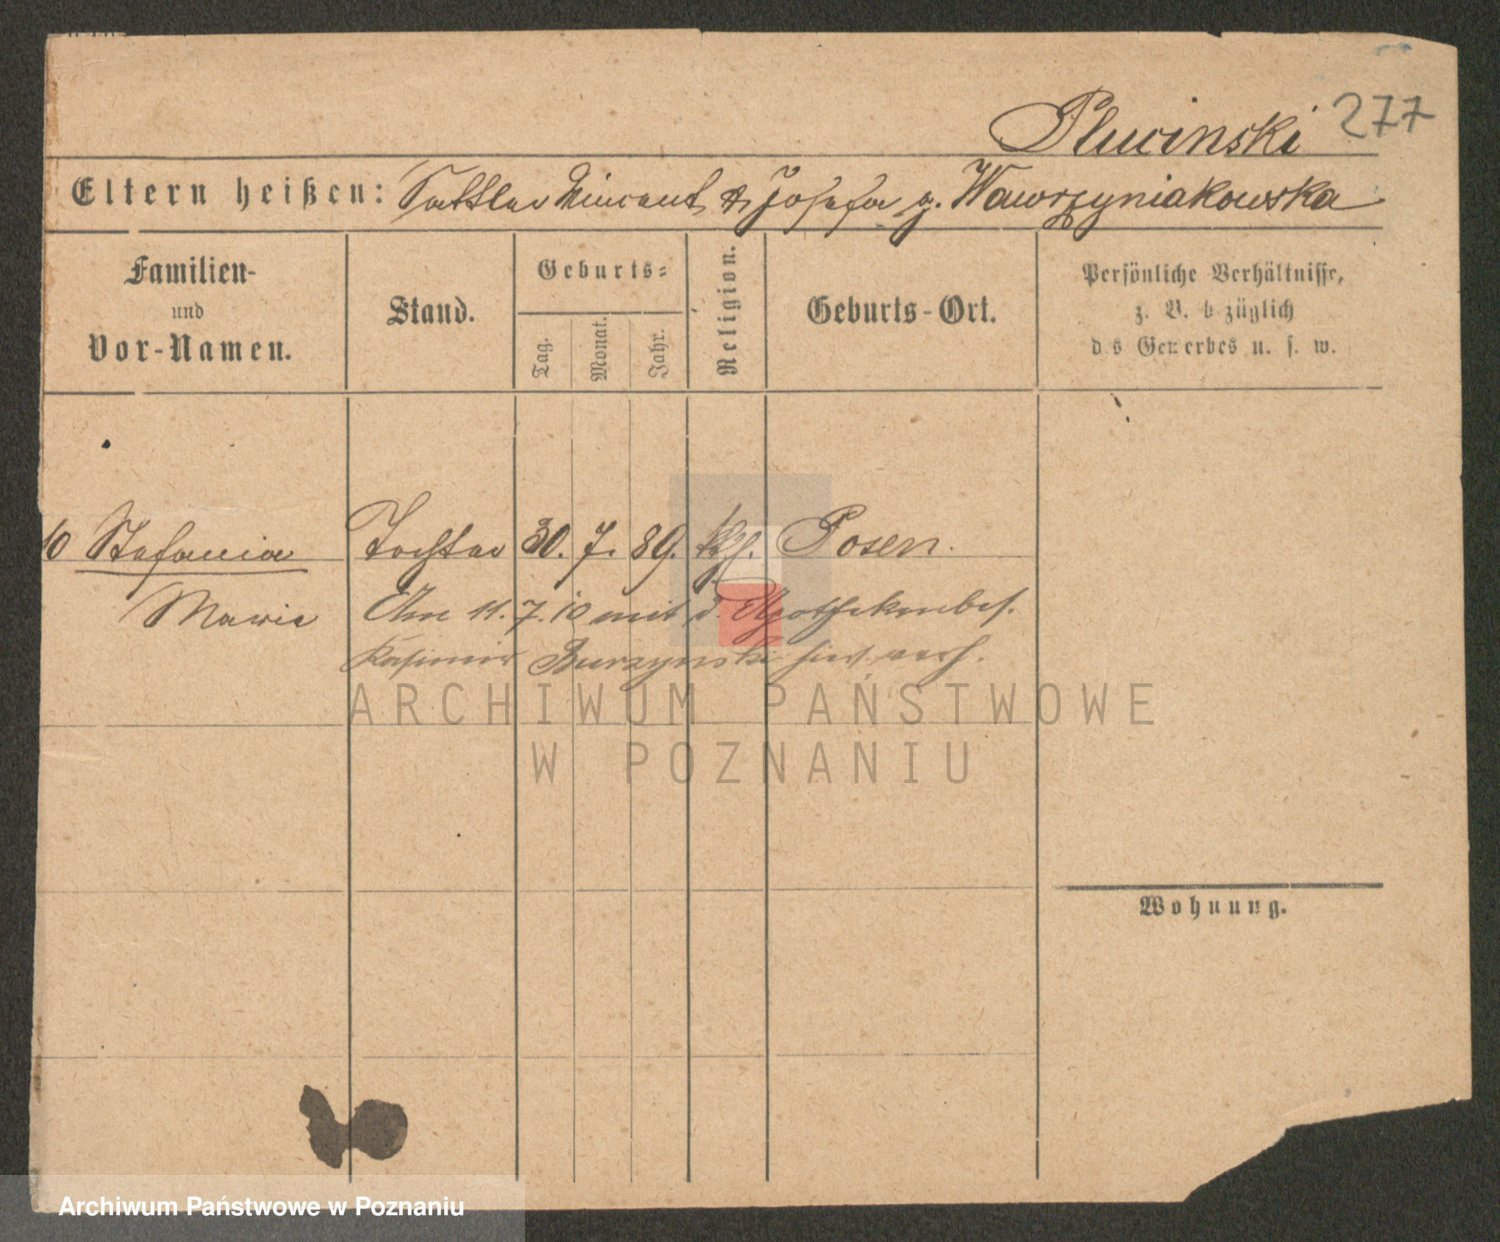 Plucinski 277
Eltern heißen: Sattler Vincent & Josefa g. Wawrzyniakowska
Familien-
und
Vor-Namen.
Stand.
Geburts-
Tag.
Monat.
Jahr.
Religion.
Geburts-Ort.
Persönliche Verhältnisse,
z. B. b züglich
d s Gewerbes u. s. w.
10 Stefania Tochter 30. 7. 89. kth. Posen.
Marie Am 11. 7. 10 mit d. Apothekenbes.
Kasimir Burzynski hier verh.
Wohnung.
ARCHIWUM PAŃSTWOWE
W POZNANIU
Archiwum Państwowe w Poznaniu